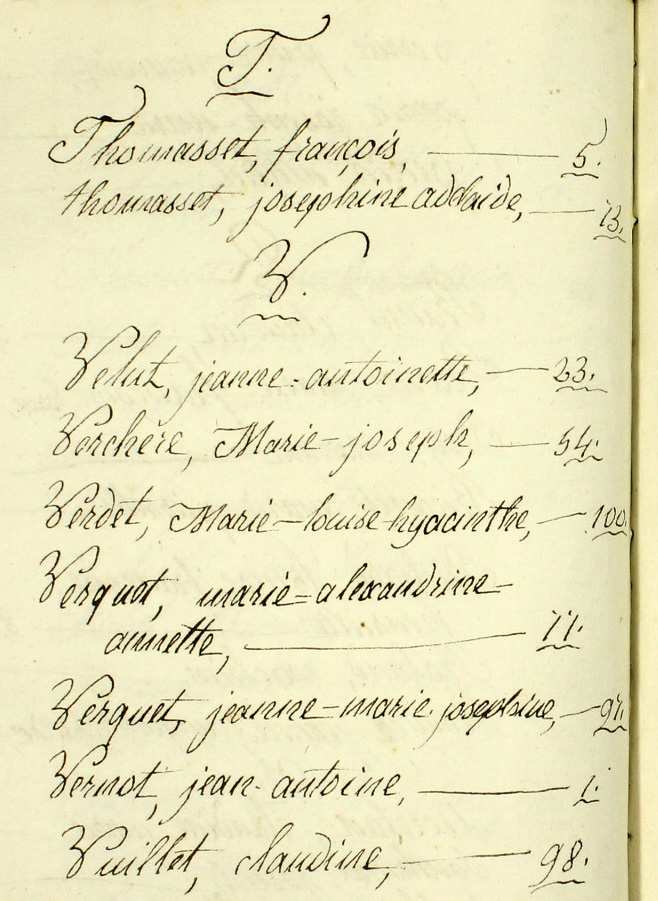 T.
Thomasset, françois, — 5.
thomasset, josephine adelaide, — 13.
V.
Velut, jeanne=antoinette, — 23.
Verchere, Marie-joseph, — 54.
Verdet, Marie-louise-hyacinthe, — 100.
Verquet, marie=alexandrine-
annette, — 77.
Verguet, jeanne-marie-josephine, — 97.
Vernot, jean-antoine, — 1.
Vuillet, claudine, — 98.